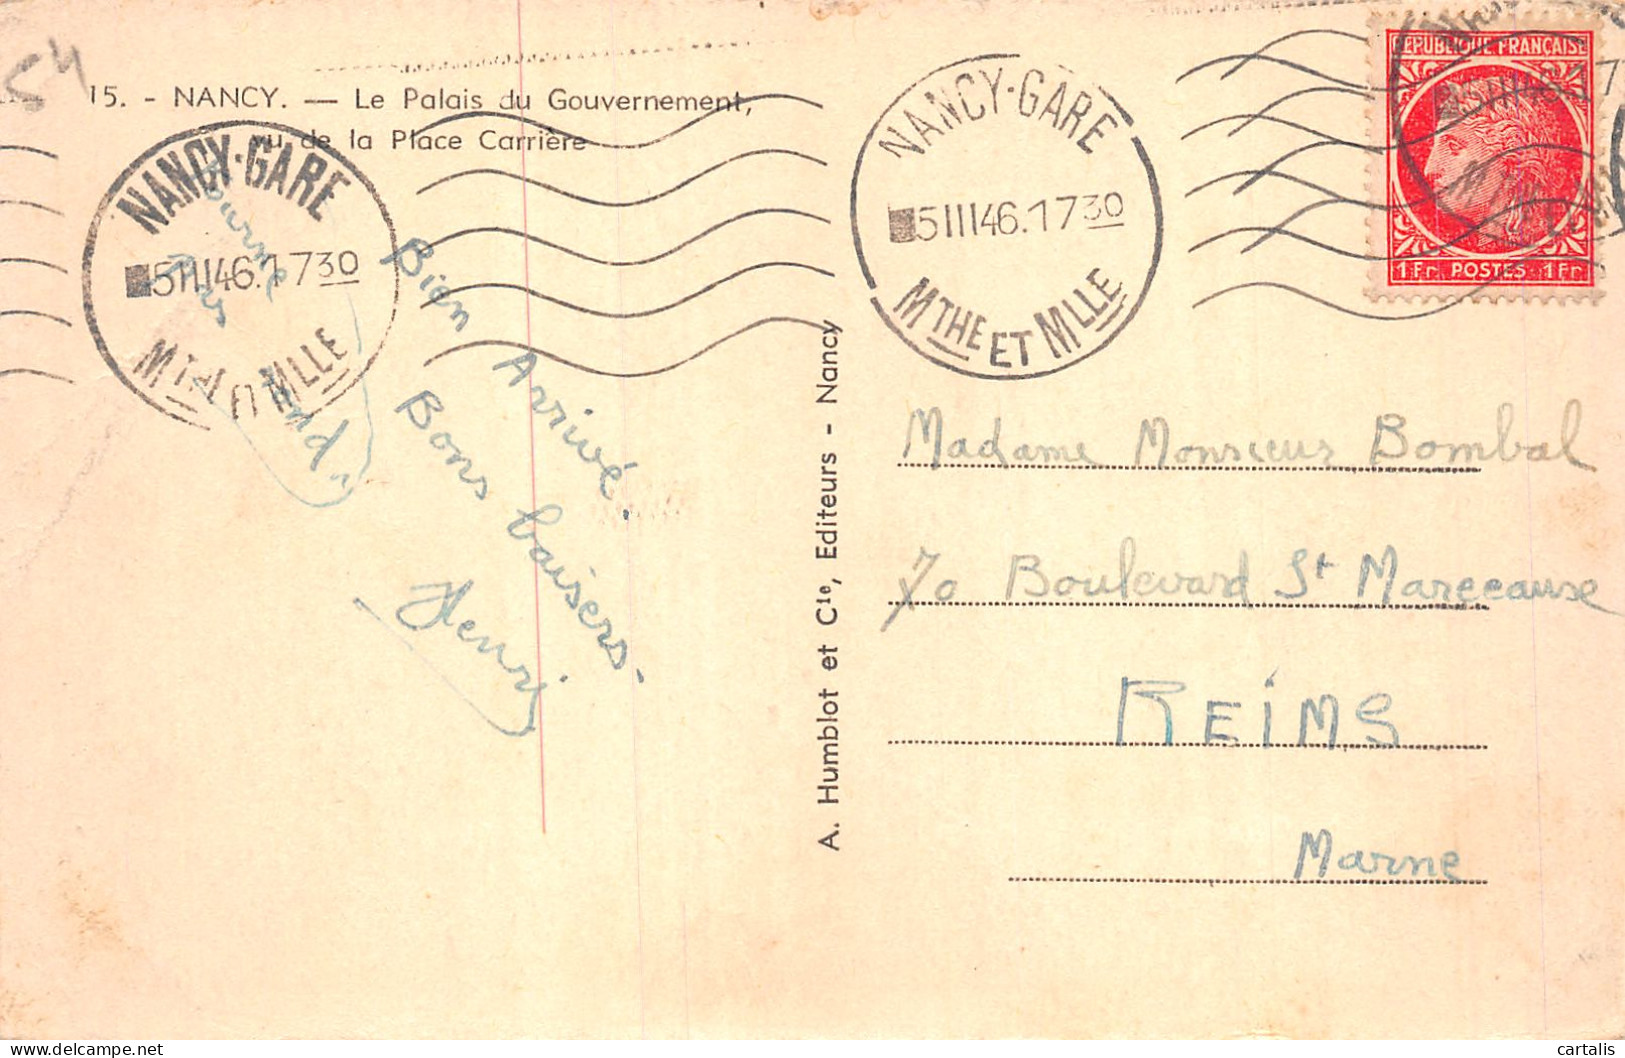 54
15. - NANCY. — Le Palais du Gouvernement,
vu de la Place Carrière
NANCY-GARE
5 III 46. 17 30
MTHE ET MLLE
NANCY-GARE
5 III 46. 17 30
MTHE ET MLLE
REPUBLIQUE FRANÇAISE
1 Fr. POSTES. 1 Fr
Bien Arrivé.
Bons baisers.
Henri
A. Humblot et Cie, Editeurs - Nancy
Madame Monsieur Bombal
70 Boulevard St Marceause
REIMS
Marne
cartalis